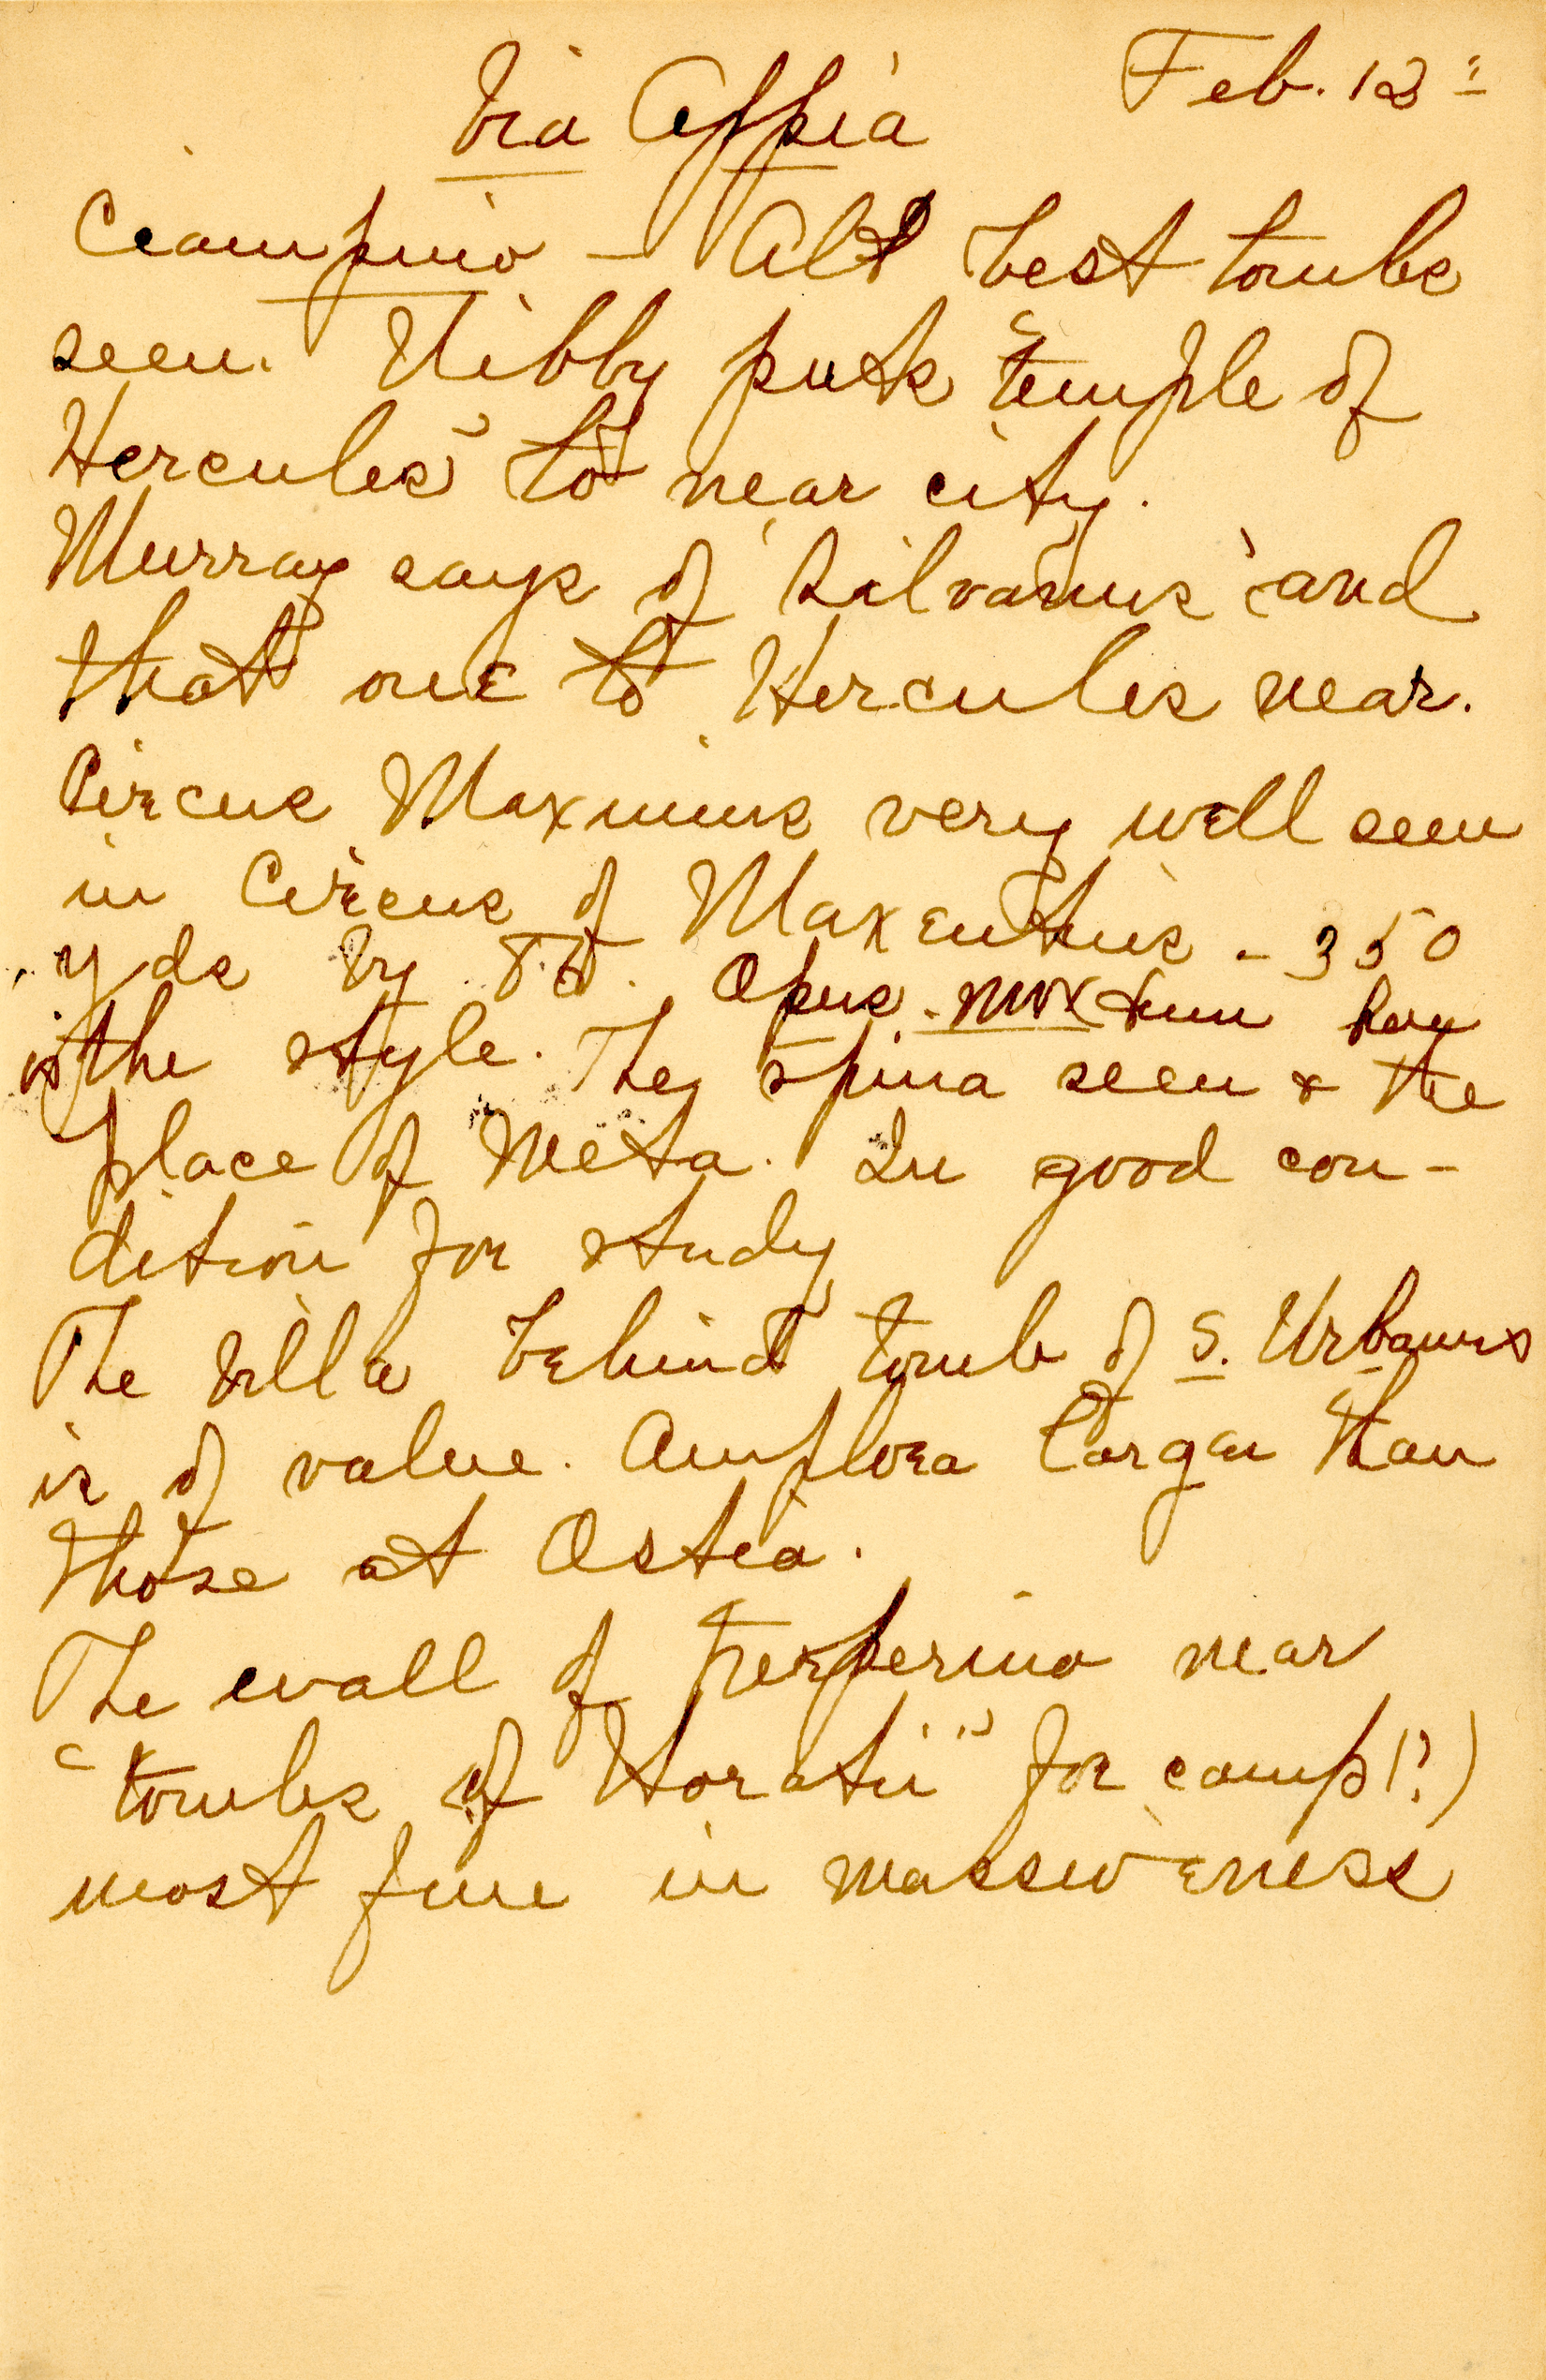 Via Appia Feb. 12"
Ciampino – All best tombs
seen. Nibby puts "temple of
Hercules" to near city.
Murray says of 'Silvanus' and
that one to Hercules near.
Circus Maximus very well seen
in Circus of Maxentius – 350
yds by 86. Opus mixtum here
is the style. The spina seen & the
place of Meta. In good con-
dition for study
The Villa behind tomb of S. Urbanus
is of value. Amphora larger than
those at Ostia.
The wall of perperino near
"tombs of Horatii" for camp (?)
most fine in massiveness